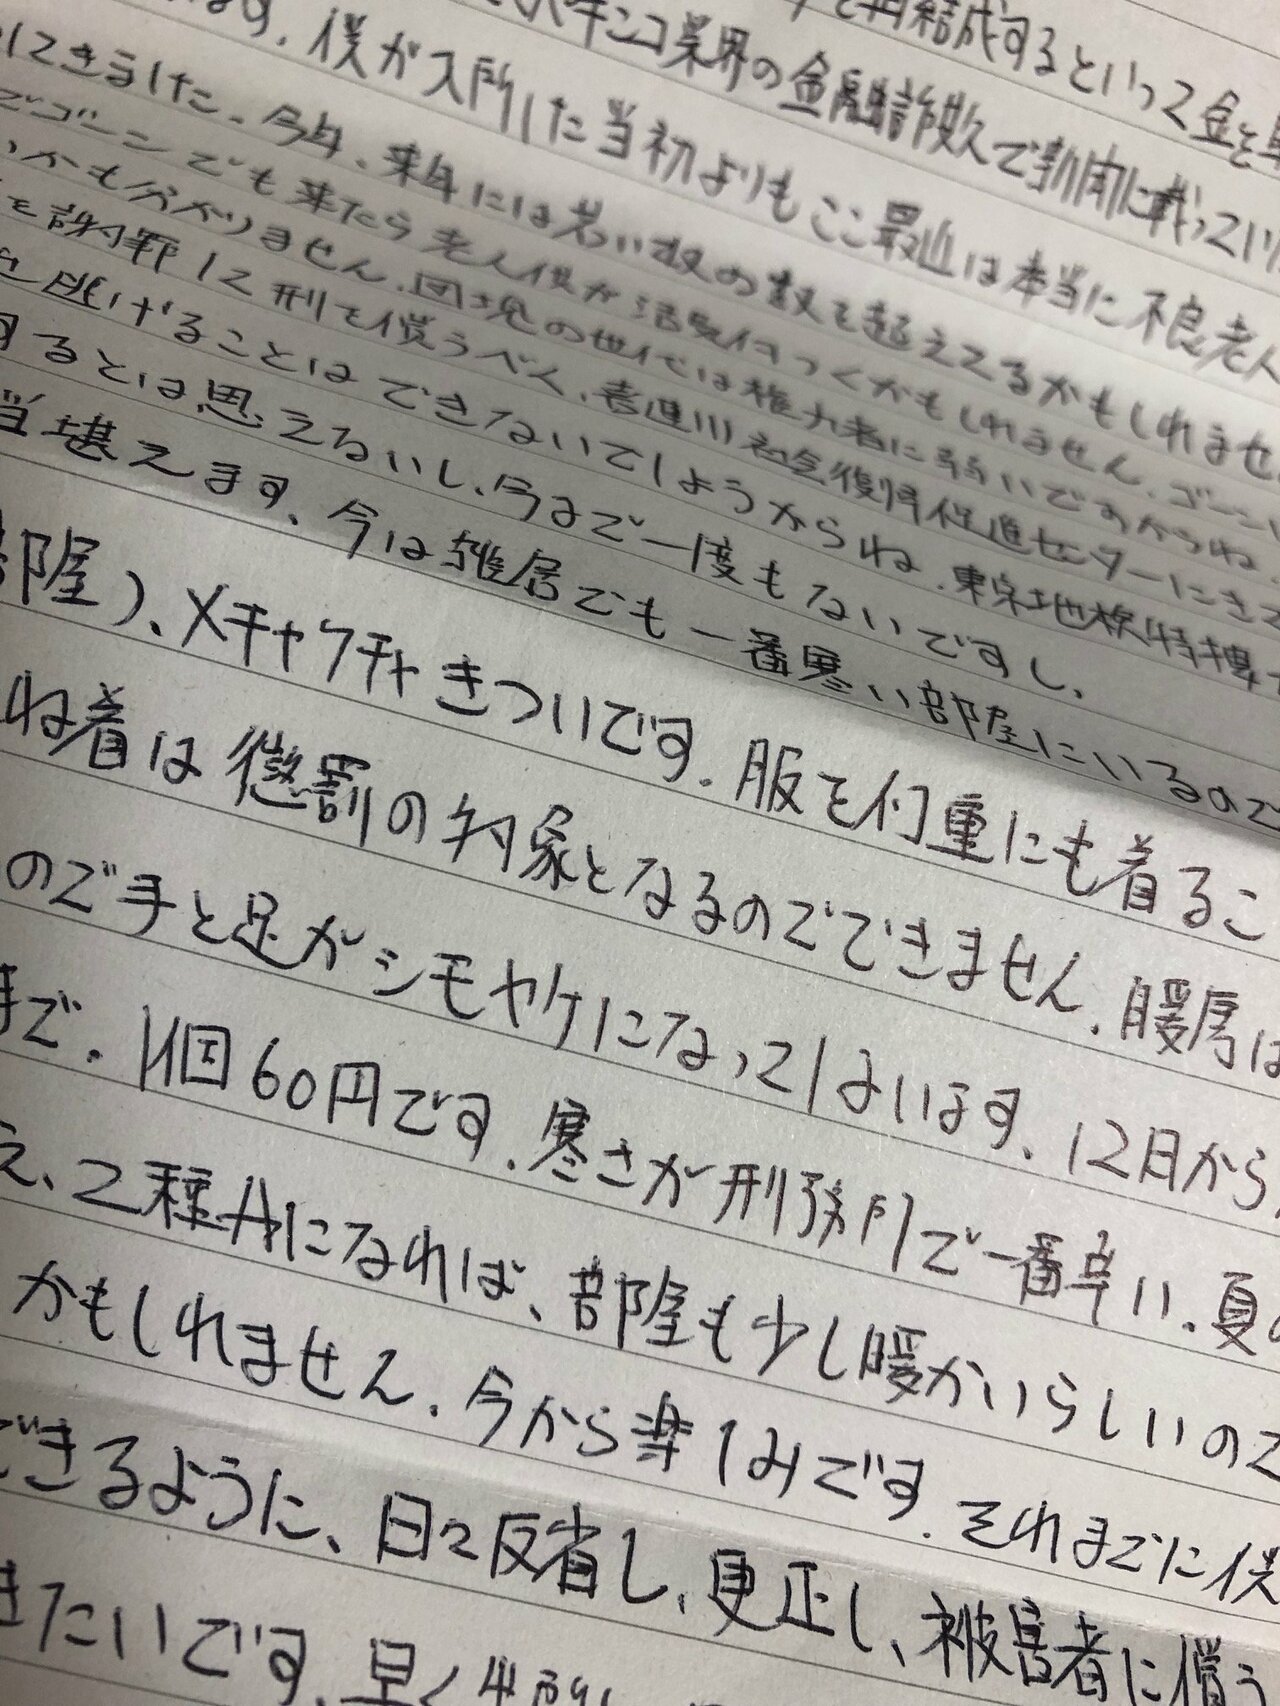 再結成するといって金を
パチンコ業界の金融詐欺で新聞に載ってい
す。僕が入所した当初よりもここ最近は本当に不良老人
にきました。今年、来年には若い奴の数を超えてるかもしれませ
でゴーンでも来たら老人俣が活気付つくかもしれません。ゴーン
かも分かりません。団塊の世代は権力者に弱いですからね。
を謝罪に刑を償うべく、喜連川社会復帰促進センターにきて
逃げることはできないでしょうからね。東京地検特捜
するとは思えるいし、今まで一度もないですし、
当堪えます。今は雑居でも一番寒い部屋にいるので
部屋)、メチャクチャきついです。服を何重にも着るこ
ね着は懲罰の対象となるのでできません。暖房は
ので手と足がシモヤケになってしまいます。12月から
まで。1個60円です。寒さが刑務所で一番辛い。夏の
え、2種Aになれば、部屋も少し暖かいらしいので
かもしれません。今から楽しみです。それまでに僕
できるように、日々反省し、更正し、被害者に償う
きたいです。早く出所し